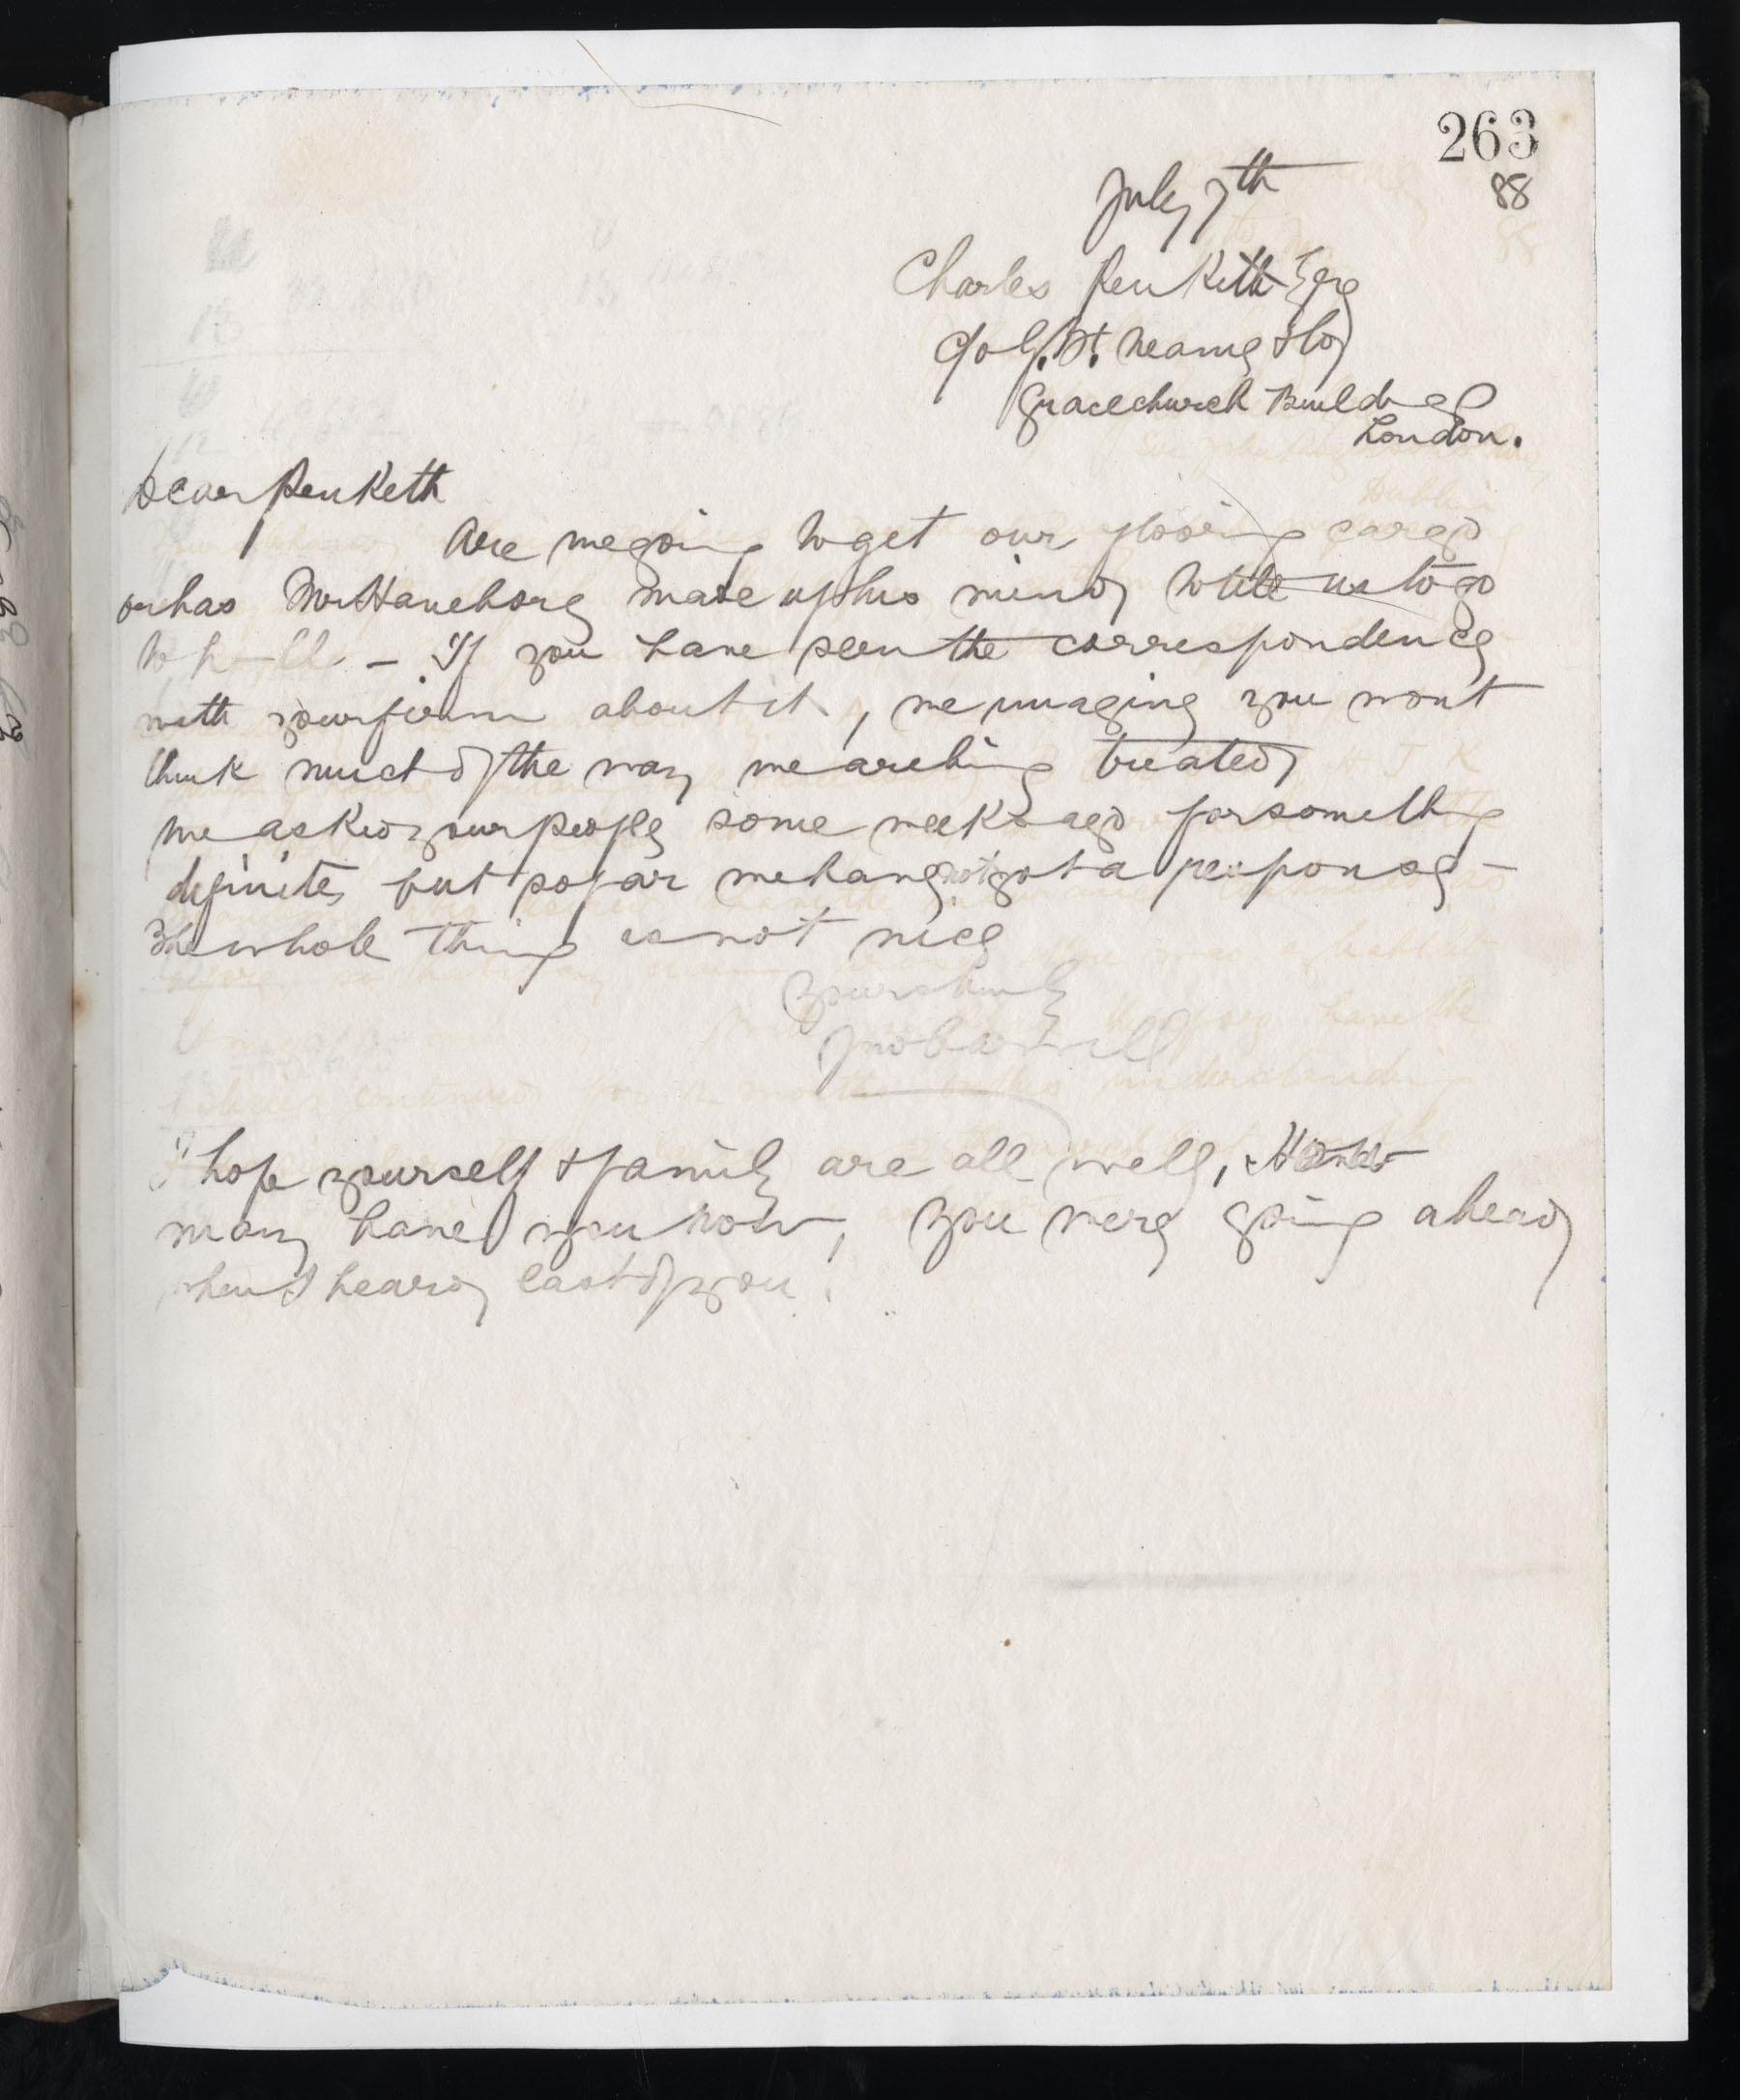 263
July 7th 88
Charles Penketh Esqre
c/o G. H. Nearing & Co
Gracechurch Buildings
London.
Dear Penketh
Are we going to get our flooring cargo
or has Mr Haneborg made up his mind to tell us to go
to h—ll. — If you have seen the correspondence
with your firm about it, we imagine you wont
think much of the way we are being treated
We asked your people some weeks ago for something
definite, but so far we have not got a response —
The whole thing is not nice
Yours truly
I hope yourself & family are all well, How
many have you now, you were going ahead
when I heard last of you.